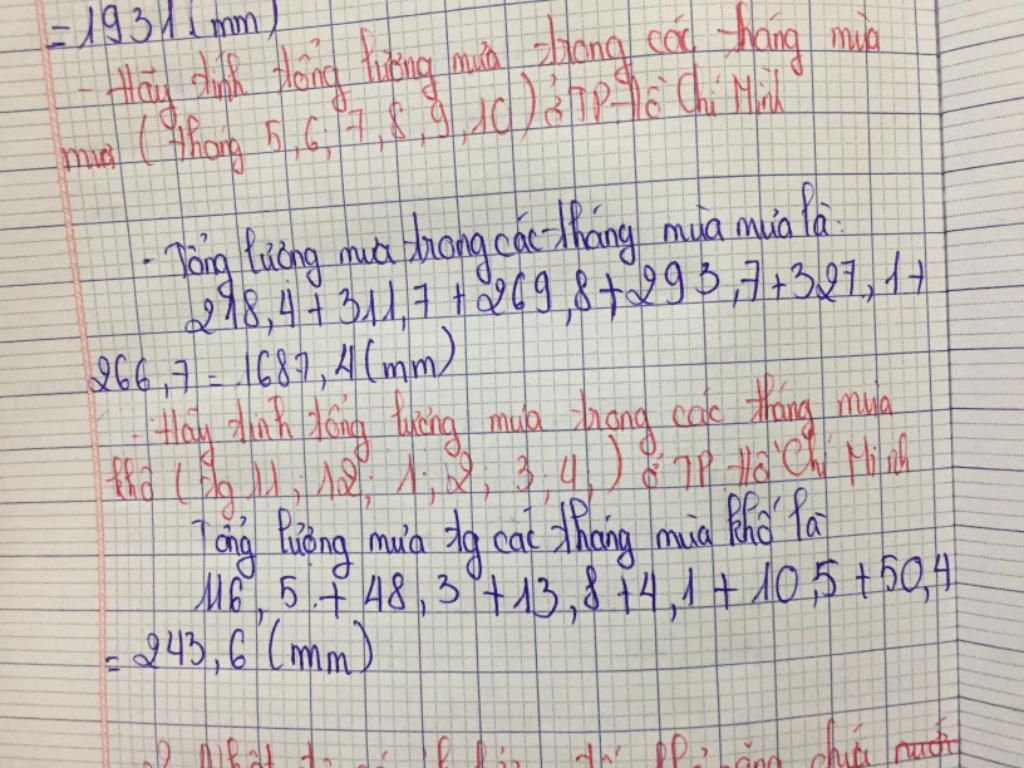 = 1931 (mm)
- Hãy tính tổng lượng mưa trong các tháng mùa
mưa (tháng 5, 6, 7, 8, 9, 10) ở TP Hồ Chí Minh
- Tổng lượng mưa trong các tháng mùa mưa là:
218,4 + 311,7 + 269,8 + 293,7 + 327,1 +
266,7 = 1687,4 (mm)
- Hãy tính tổng lượng mưa trong các tháng mùa
khô (tg 11; 12; 1; 2; 3; 4,) ở TP Hồ Chí Minh
Tổng lượng mưa tg các tháng mùa khô là
116,5 + 48,3 + 13,8 + 4,1 + 10,5 + 50,4
= 243,6 (mm)